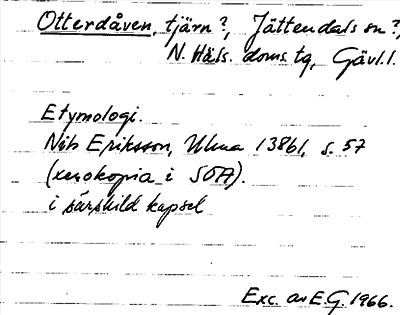 Otterdåven, tjärn?, Jättendals sn?,
N. Häls. doms.tg, Gävl.l.
Etymologi.
Nils Eriksson, Ulma 13861, s. 57
(xerokopia i SOA).
i särskild kapsel
Exc. av E.G. 1966.